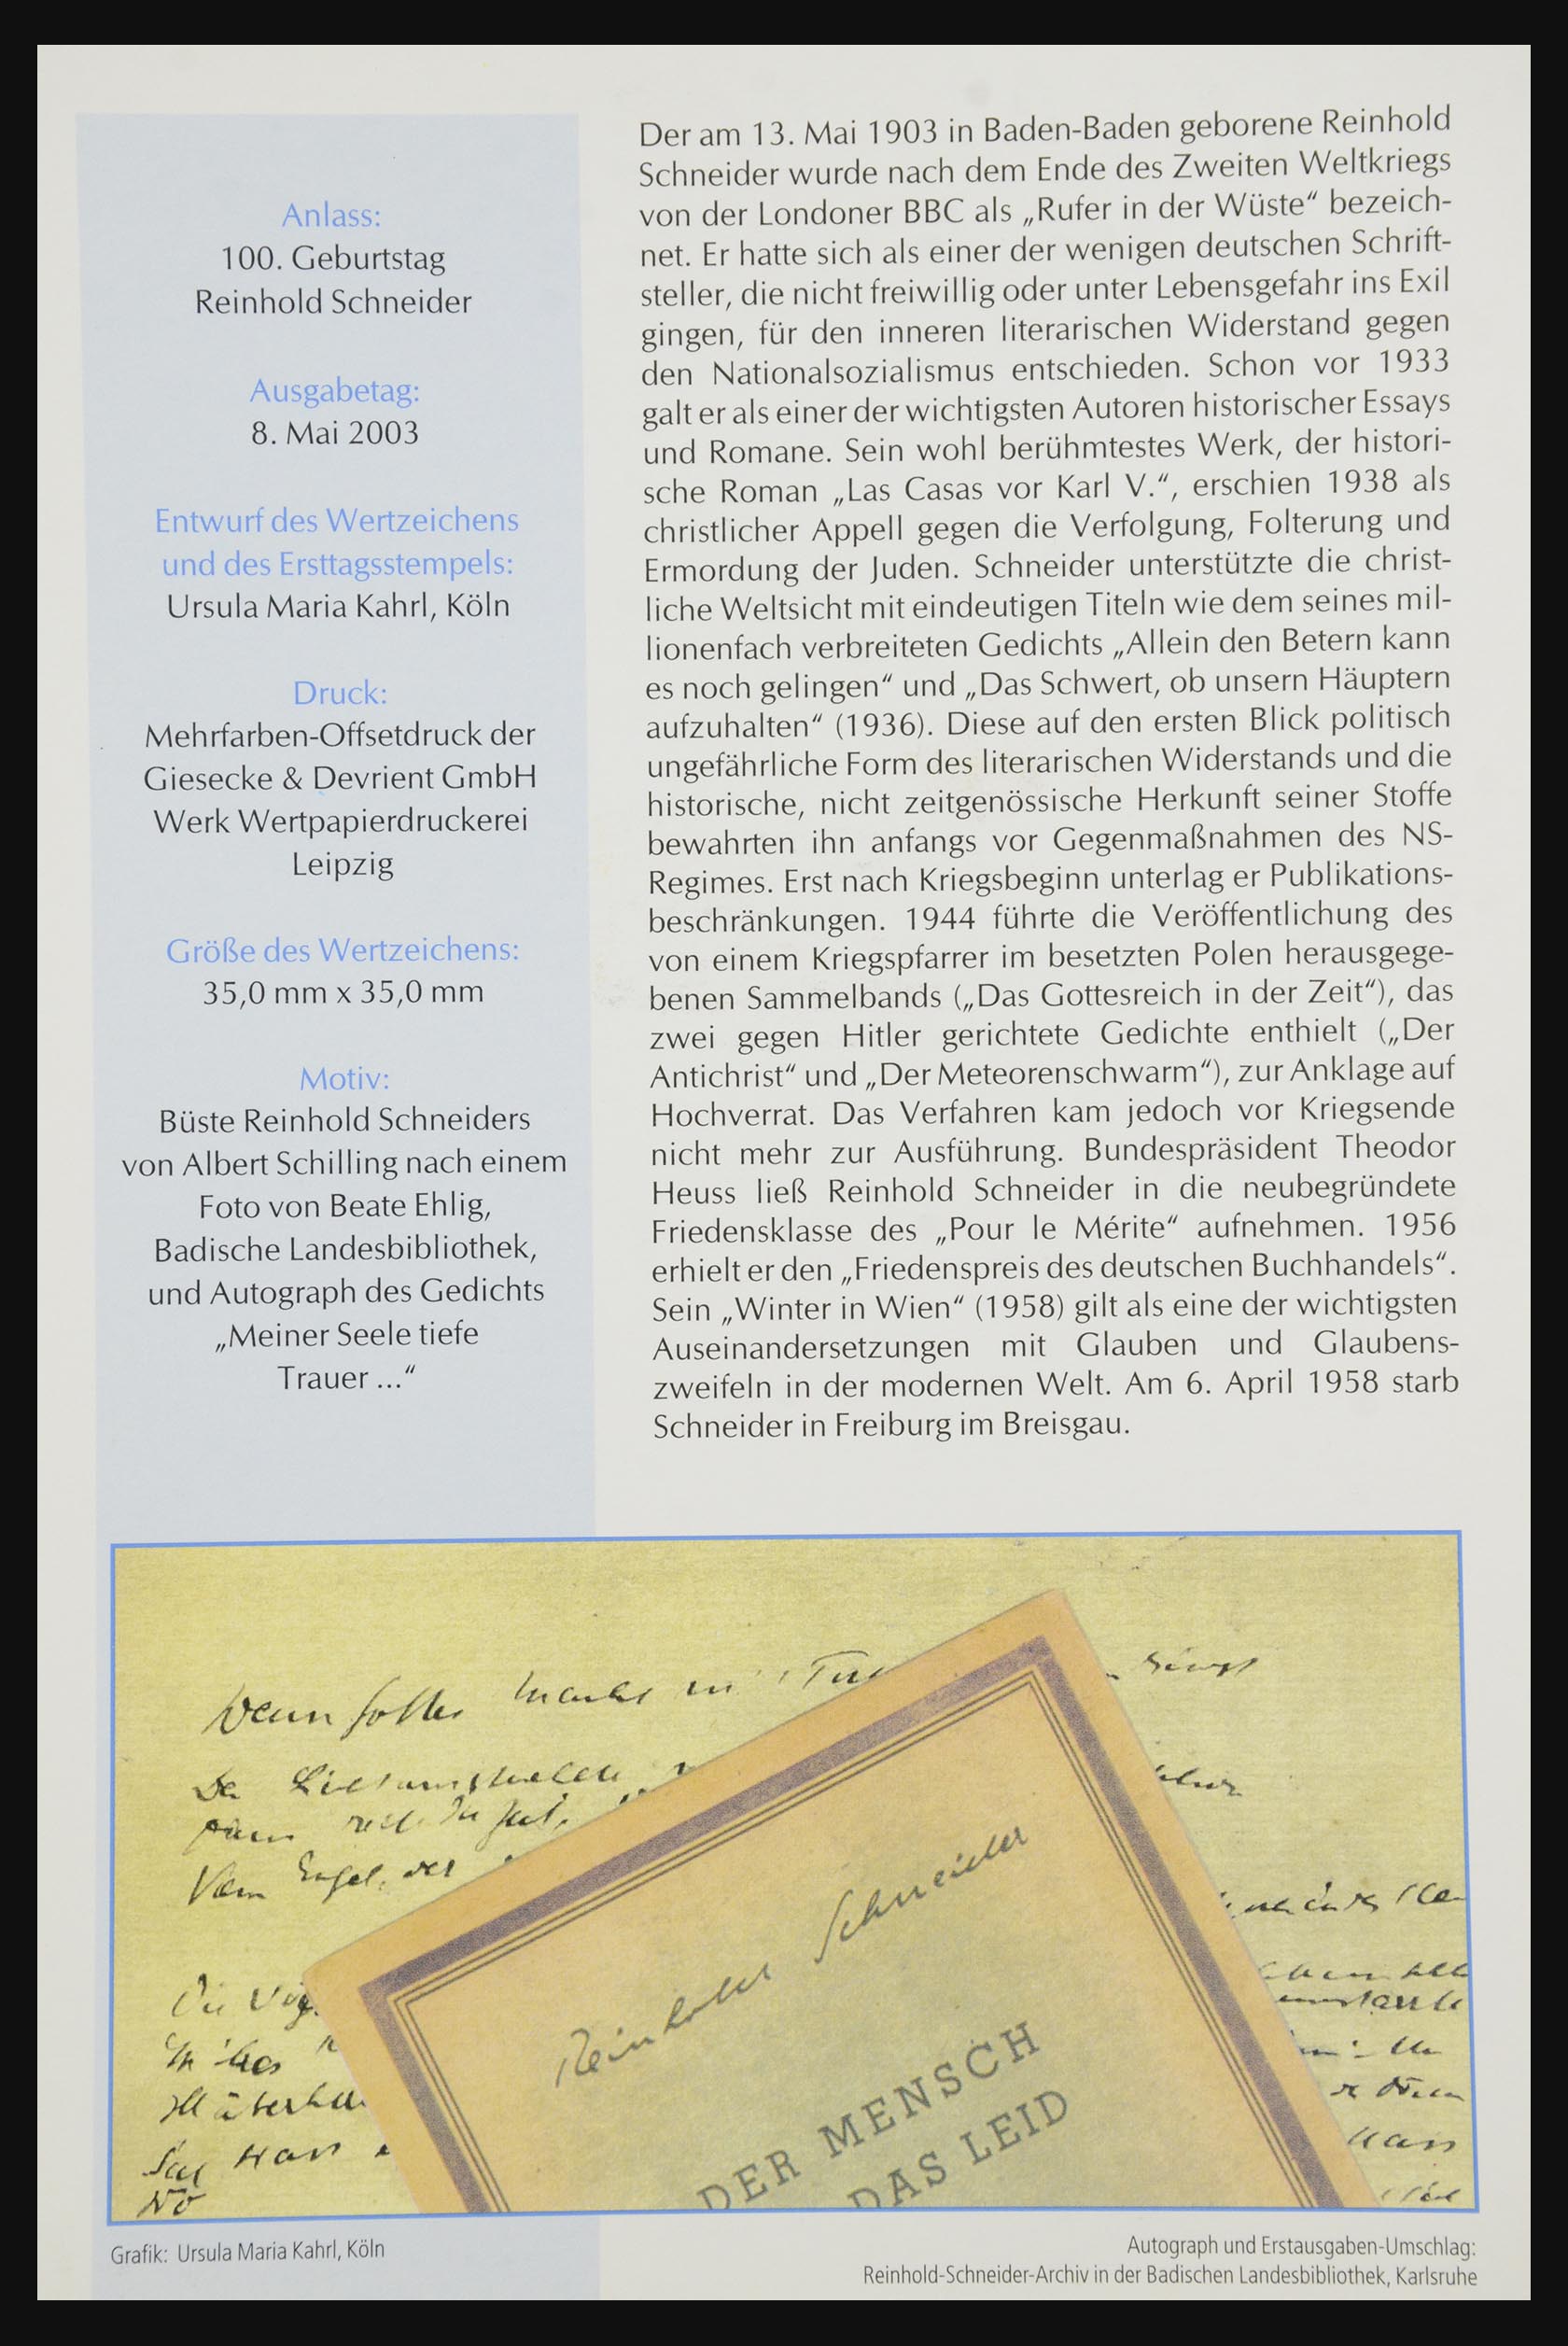 Anlass:
100. Geburtstag
Reinhold Schneider
Ausgabetag:
8. Mai 2003
Entwurf des Wertzeichens
und des Ersttagsstempels:
Ursula Maria Kahrl, Köln
Druck:
Mehrfarben-Offsetdruck der
Giesecke & Devrient GmbH
Werk Wertpapierdruckerei
Leipzig
Größe des Wertzeichens:
35,0 mm x 35,0 mm
Motiv:
Büste Reinhold Schneiders
von Albert Schilling nach einem
Foto von Beate Ehlig,
Badische Landesbibliothek,
und Autograph des Gedichts
„Meiner Seele tiefe
Trauer ...“
Der am 13. Mai 1903 in Baden-Baden geborene Reinhold
Schneider wurde nach dem Ende des Zweiten Weltkriegs
von der Londoner BBC als „Rufer in der Wüste“ bezeich-
net. Er hatte sich als einer der wenigen deutschen Schrift-
steller, die nicht freiwillig oder unter Lebensgefahr ins Exil
gingen, für den inneren literarischen Widerstand gegen
den Nationalsozialismus entschieden. Schon vor 1933
galt er als einer der wichtigsten Autoren historischer Essays
und Romane. Sein wohl berühmtestes Werk, der histori-
sche Roman „Las Casas vor Karl V.“, erschien 1938 als
christlicher Appell gegen die Verfolgung, Folterung und
Ermordung der Juden. Schneider unterstützte die christ-
liche Weltsicht mit eindeutigen Titeln wie dem seines mil-
lionenfach verbreiteten Gedichts „Allein den Betern kann
es noch gelingen“ und „Das Schwert, ob unsern Häuptern
aufzuhalten“ (1936). Diese auf den ersten Blick politisch
ungefährliche Form des literarischen Widerstands und die
historische, nicht zeitgenössische Herkunft seiner Stoffe
bewahrten ihn anfangs vor Gegenmaßnahmen des NS-
Regimes. Erst nach Kriegsbeginn unterlag er Publikations-
beschränkungen. 1944 führte die Veröffentlichung des
von einem Kriegspfarrer im besetzten Polen herausgege-
benen Sammelbands („Das Gottesreich in der Zeit“), das
zwei gegen Hitler gerichtete Gedichte enthielt („Der
Antichrist“ und „Der Meteorenschwarm“), zur Anklage auf
Hochverrat. Das Verfahren kam jedoch vor Kriegsende
nicht mehr zur Ausführung. Bundespräsident Theodor
Heuss ließ Reinhold Schneider in die neubegründete
Friedensklasse des „Pour le Mérite“ aufnehmen. 1956
erhielt er den „Friedenspreis des deutschen Buchhandels“.
Sein „Winter in Wien“ (1958) gilt als eine der wichtigsten
Auseinandersetzungen mit Glauben und Glaubens-
zweifeln in der modernen Welt. Am 6. April 1958 starb
Schneider in Freiburg im Breisgau.
Reinhold Schneider
DER MENSCH
DAS LEID
Grafik: Ursula Maria Kahrl, Köln
Autograph und Erstausgaben-Umschlag:
Reinhold-Schneider-Archiv in der Badischen Landesbibliothek, Karlsruhe